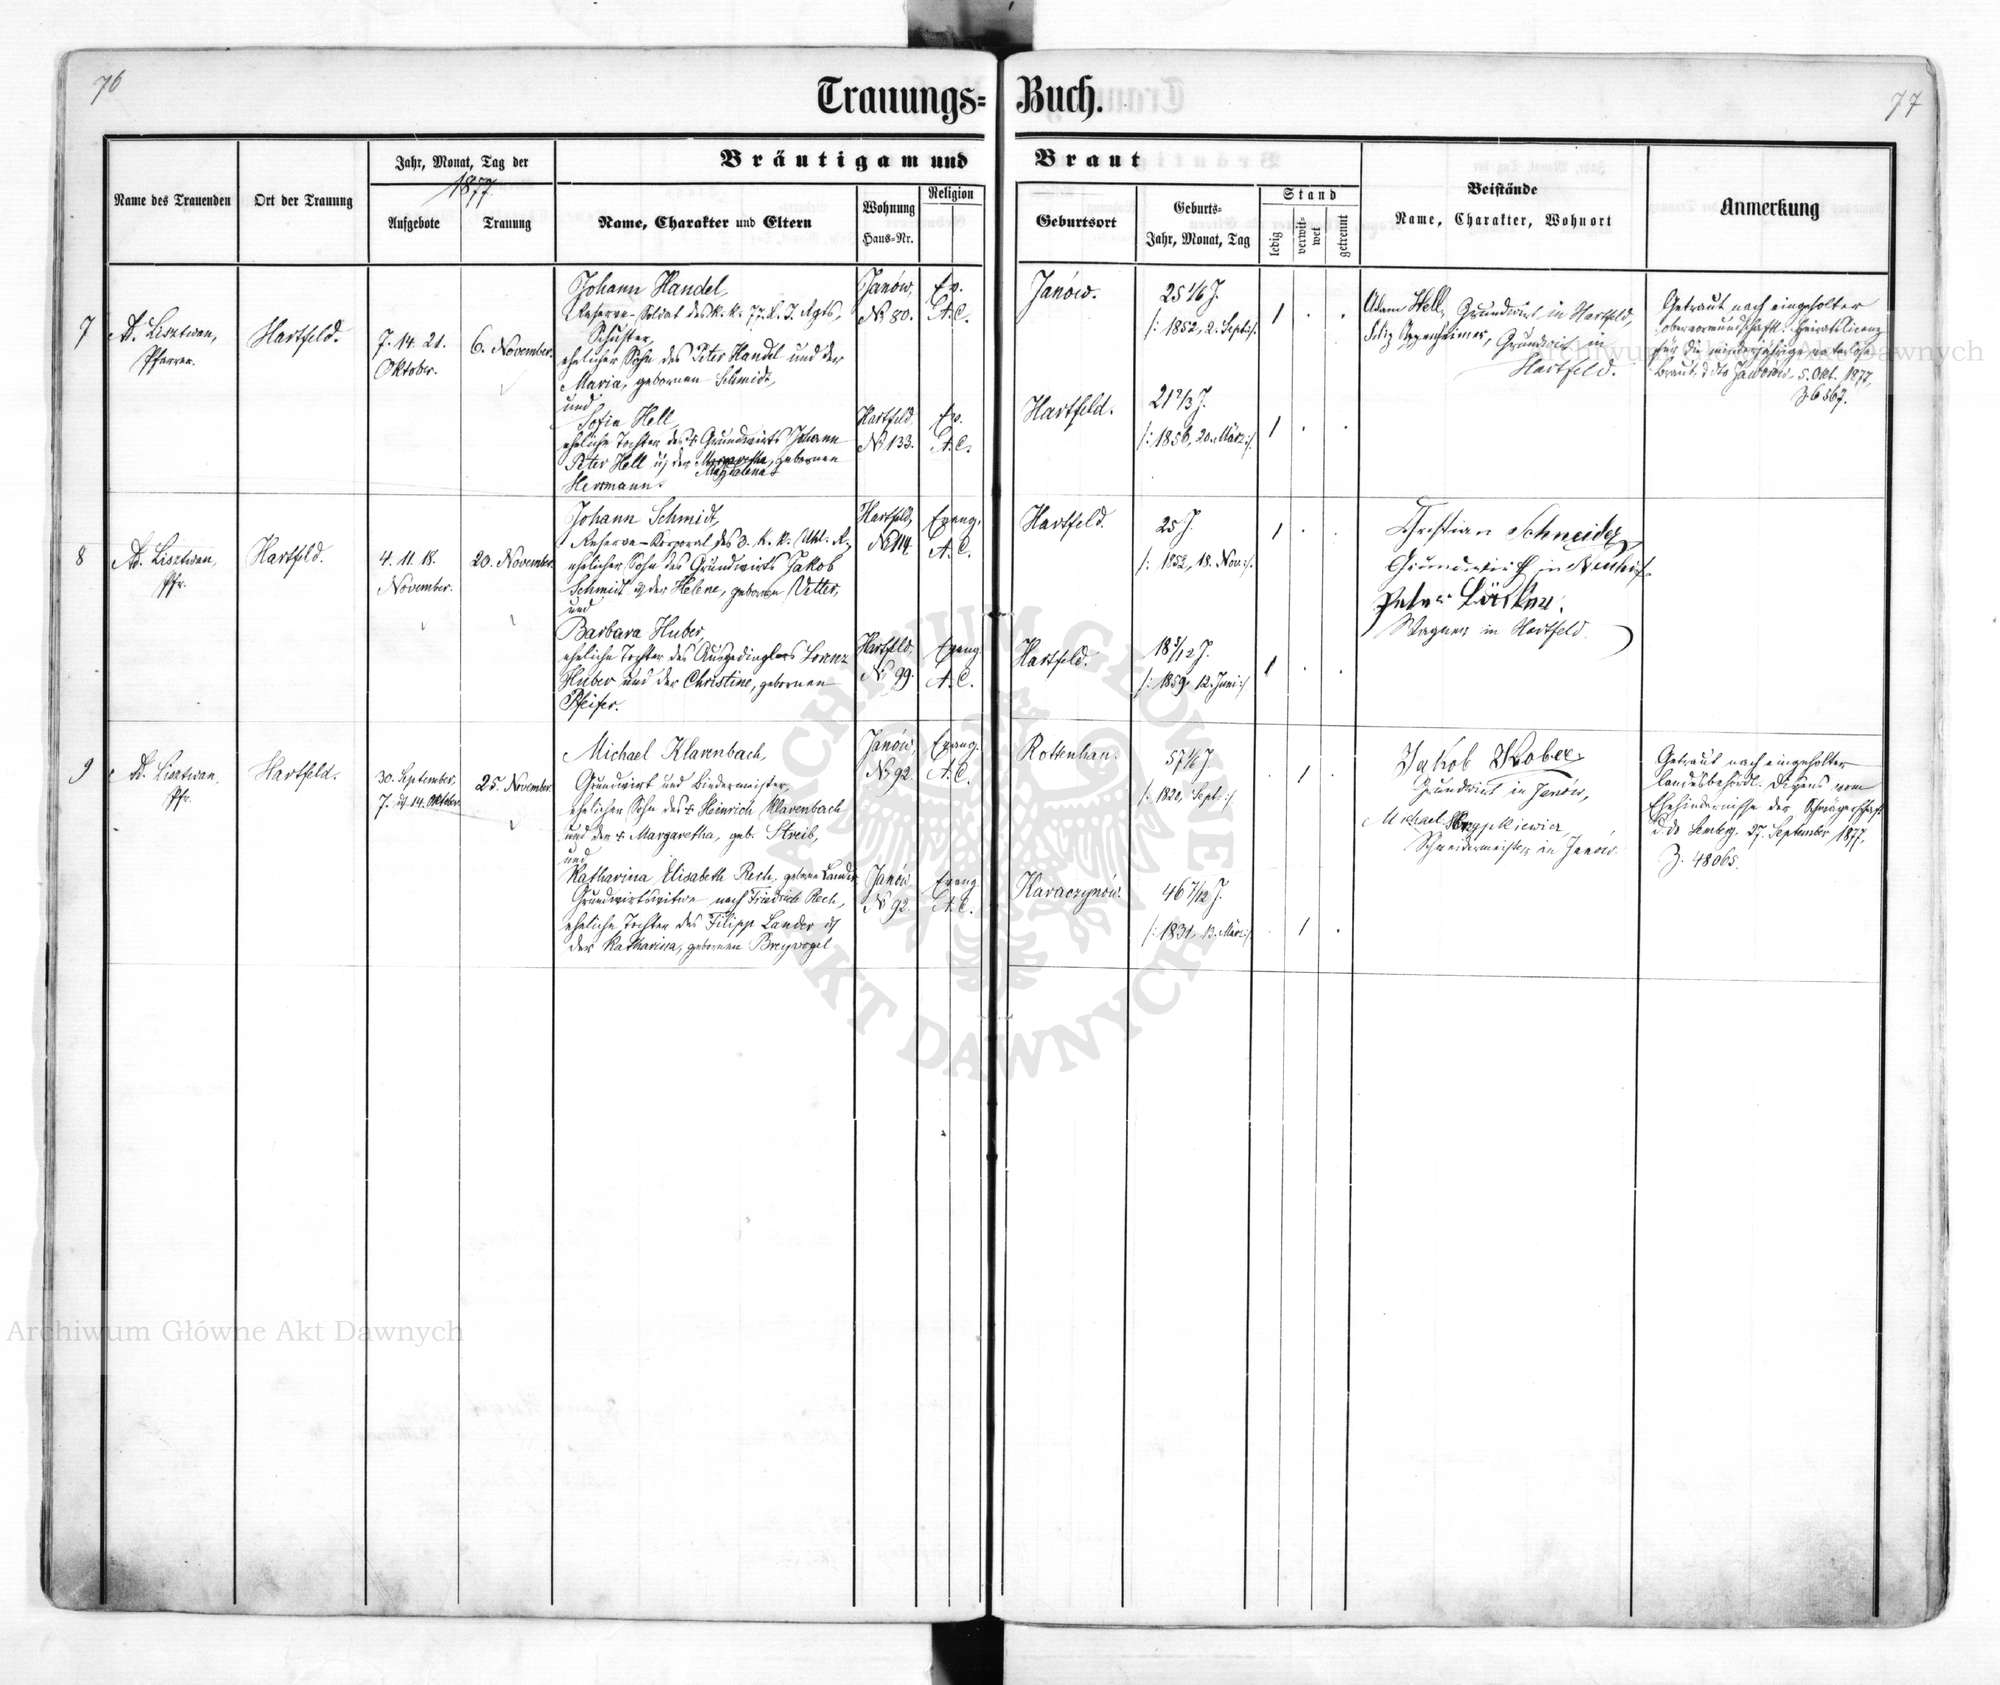 76
77
Trauungs=Buch.
Name des Trauenden
Ort der Trauung
Jahr, Monat, Tag der
1877.
Aufgebote
Trauung
Bräutigam und Braut
Name, Charakter und Eltern
Wohnung
Haus=Nr.
Religion
Geburtsort
Geburts=
Jahr, Monat, Tag
Stand
ledig
verwit=
wet
getrennt
Beistände
Name, Charakter, Wohnort
Anmerkung
7
A. Lisztwan,
Pfarrer.
Hartfeld.
7. 14. 21.
Oktober.
6. November.
Johann Handel,
Reserve-Soldat des k. k. 77. L. I. Rgts,
Schuster,
ehelicher Sohn des Peter Handel und der
Maria, gebornen Schmidt,
und
Sofia Hell,
eheliche Tochter des † Grundwirts Johann
Peter Hell u. der Margaretha, gebornen
Magdalena
Herrmann.
Janów,
No 80.
Ev.
A. C.
Hartfeld,
No 133.
Ev.
A. C.
Janów.
25 1/6 J.
/: 1852, 2. Sept. :/.
1 . .
Hartfeld.
21 2/3 J.
/: 1856, 20. März :/.
1 . .
Adam Hell, Grundwirt in Hartfeld,
Grundwirt in
Hartfeld.
Getraut nach eingeholter
obervormundschaftl. Heiratslicenz
für die minderjährige vaterlose
Braut, d dto Jaworów, 5. Okt. 1877,
Z 6567.
8
A. Lisztwan,
Pfr.
Hartfeld.
4. 11. 18.
November.
20. November.
Johann Schmidt,
Reserve-Korporal des 3. k. k. Uhl. R.,
ehelicher Sohn des Grundwirts Jakob
Schmidt u. der Helene, gebornen Vetter,
und
Barbara Huber,
eheliche Tochter des Ausgedinglers Lorenz
Huber und der Christine, gebornen
Pfeifer.
Hartfeld,
No 114.
Evang.
A. C.
Hartfeld,
No 99.
Evang.
A. C.
Hartfeld.
25 J.
/: 1852, 18. Nov. :/.
1 . .
Hartfeld.
18 5/12 J.
/: 1859, 12. Juni :/
1 . .
Christian Schneider
Grundwirth in
Peter
Wagner in Hartfeld.
9
A. Lisztwan,
Pfr.
Hartfeld.
30. September,
7. u. 14. Oktober
25. November.
Michael Klarenbach,
Grundwirt und Biedermeister,
ehelicher Sohn des † Heinrich Klarenbach
und der † Margaretha, geb. Streib,
und
Katharina Elisabeth Rech, geborne Lander
Grundwirtswitwe nach Friedrich Rech,
eheliche Tochter des Filipp Lander u.
der Katharina, gebornen Breyvogel
Janów,
No 92.
Evang.
A. C.
Janów
No 92.
Evang.
A. C.
Rottenhan.
57 1/6 J.
/: 1820, Sept. :/
. 1 .
Karaczynów.
46 7/12 J.
/: 1831, 13. März :/.
. 1 .
Jakob Kober,
Grundwirt in Janów,
Michael
Schneidermeister in Janów.
Getraut nach eingeholter
landesbehördl. Dispens vom
Ehehindernisse der Schwägerschaft
d. do Lemberg, 27. September 1877,
Z. 48065.
Archiwum Główne Akt Dawnych
ARCHIWUM GŁÓWNE
AKT DAWNYCH
Archiwum Główne Akt Dawnych